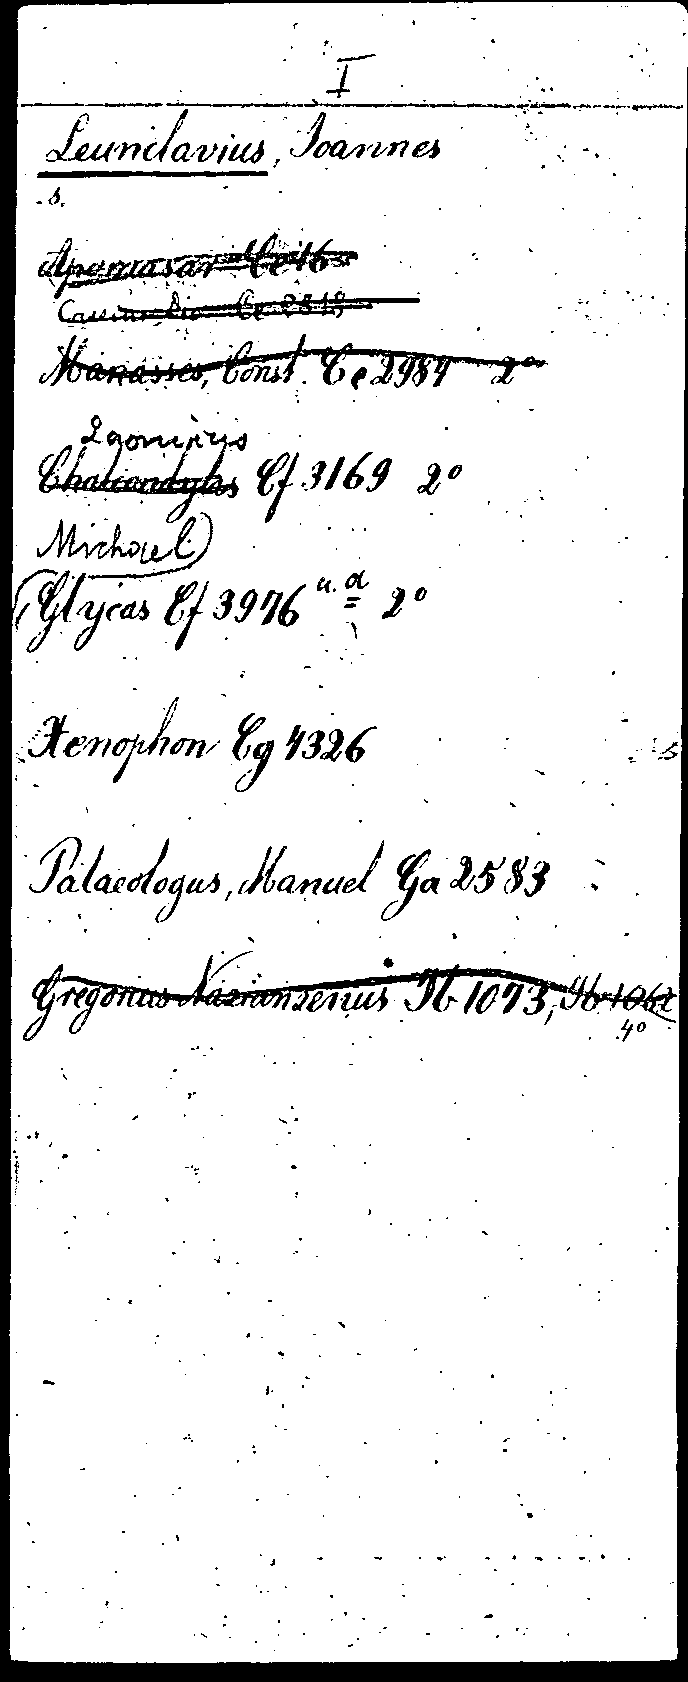 I
Leunclavius, Joannes
s.
Apomasar Ce 16
Cassius Dio Ce 2818
Manasses, Const. Ce 2984 2º
Chalcondylas Cf 3169 2º
Michael
Glycas Cf 3976 u. d 2º
Xenophon Cg 4326
Palaeologus, Manuel Ga 2583
Gregorius Nazianzenus Ib 1073, Ib 1062
4º